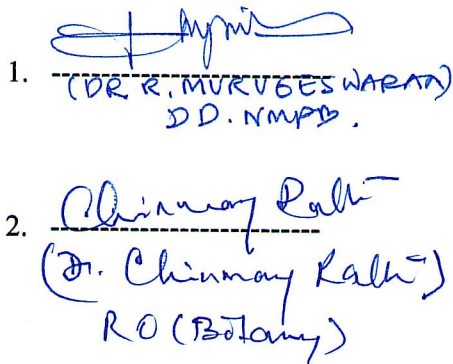 1.
(DR R. MURUGESWARAN)
DD. NMPB.
2. Chinmay Rathi
(Dr. Chinmay Rathi)
RO (Botany)